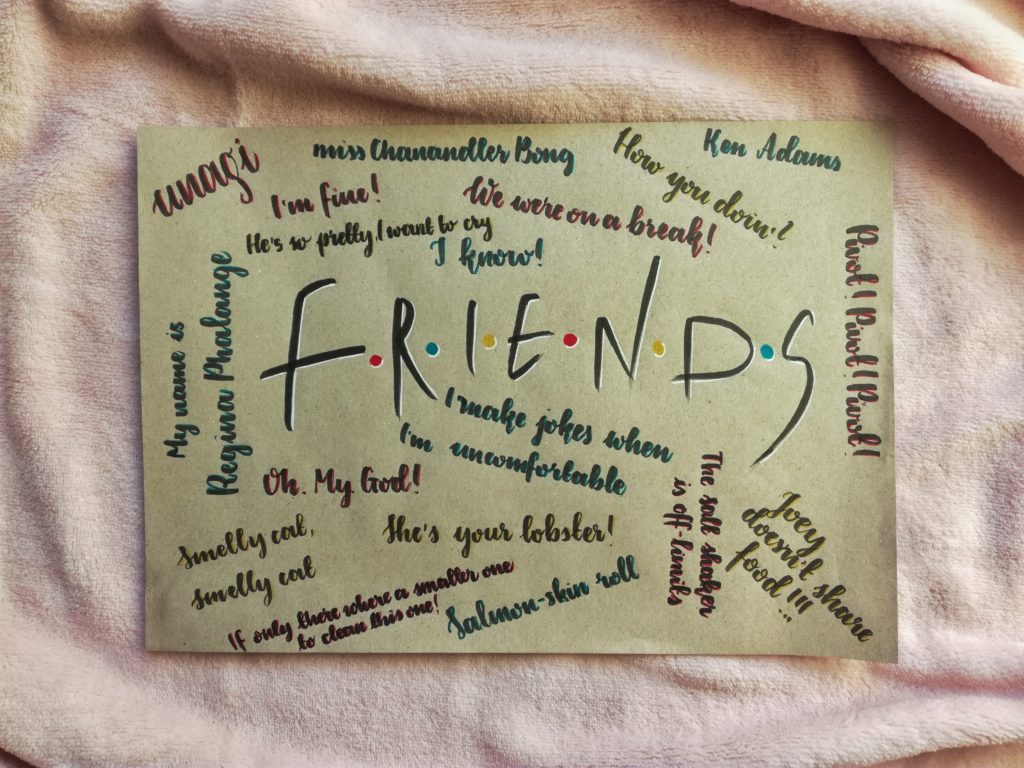 unagi
miss Chanandler Bong
How you doin'?
Ken Adams
I'm fine!
We were on a break!
He's so pretty I want to cry
I know!
Pivot! Pivot! Pivot!
My name is
Regina Phalange
F·R·I·E·N·D·S
I make jokes when
I'm uncomfortable
Oh. My God!
The salt shaker
is off-limits
Joey
doesn't share
food!!!
She's your lobster!
Smelly cat,
smelly cat
If only there where a smaller one
to clean this one!
Salmon-skin roll